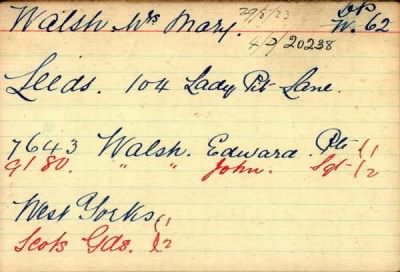 Walsh Mrs Mary. 29/5/23 DP
4D/20238 W. 62
Leeds. 104 Lady Pit Lane.
7643 Walsh. Edward. Pte 1/1
9180. " " John. Sgt 1/2
West Yorks 1/1
Scots Gds. 1/2